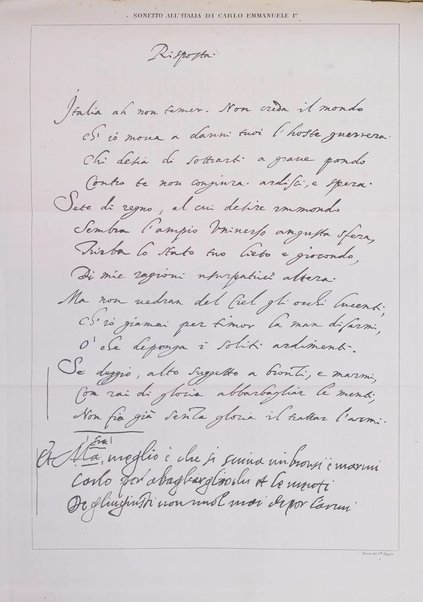 - SONETTO ALL'ITALIA DI CARLO EMMANUELE I°
Risposta
Italia ah non temer. Non creda il mondo
Ch'io mova a danni tuoi l'hoste guerrera
Chi desia di sottrarti a grave pondo
Contro te non congiura. ardisci, e spera.
Sete di regno, al cui desire immondo
Sembra l'ampio Universo angusta sfera,
Turba lo stato tuo lieto e giocondo,
Di mie ragioni usurpatrice altera.
Ma non vedran del Ciel gli occhi lucenti,
Ch'io giamai per timor la man disarmi,
O' che deponga i soliti ardimenti.
Se deggio, alto suggetto a bronzi, e marmi,
Con rai di gloria abbarbagliar le menti,
Non fia già senza gloria il trattar l'armi.
meglio è che si scriva in bronzi e marmi
Carlo
non vuol mai depor l'armi